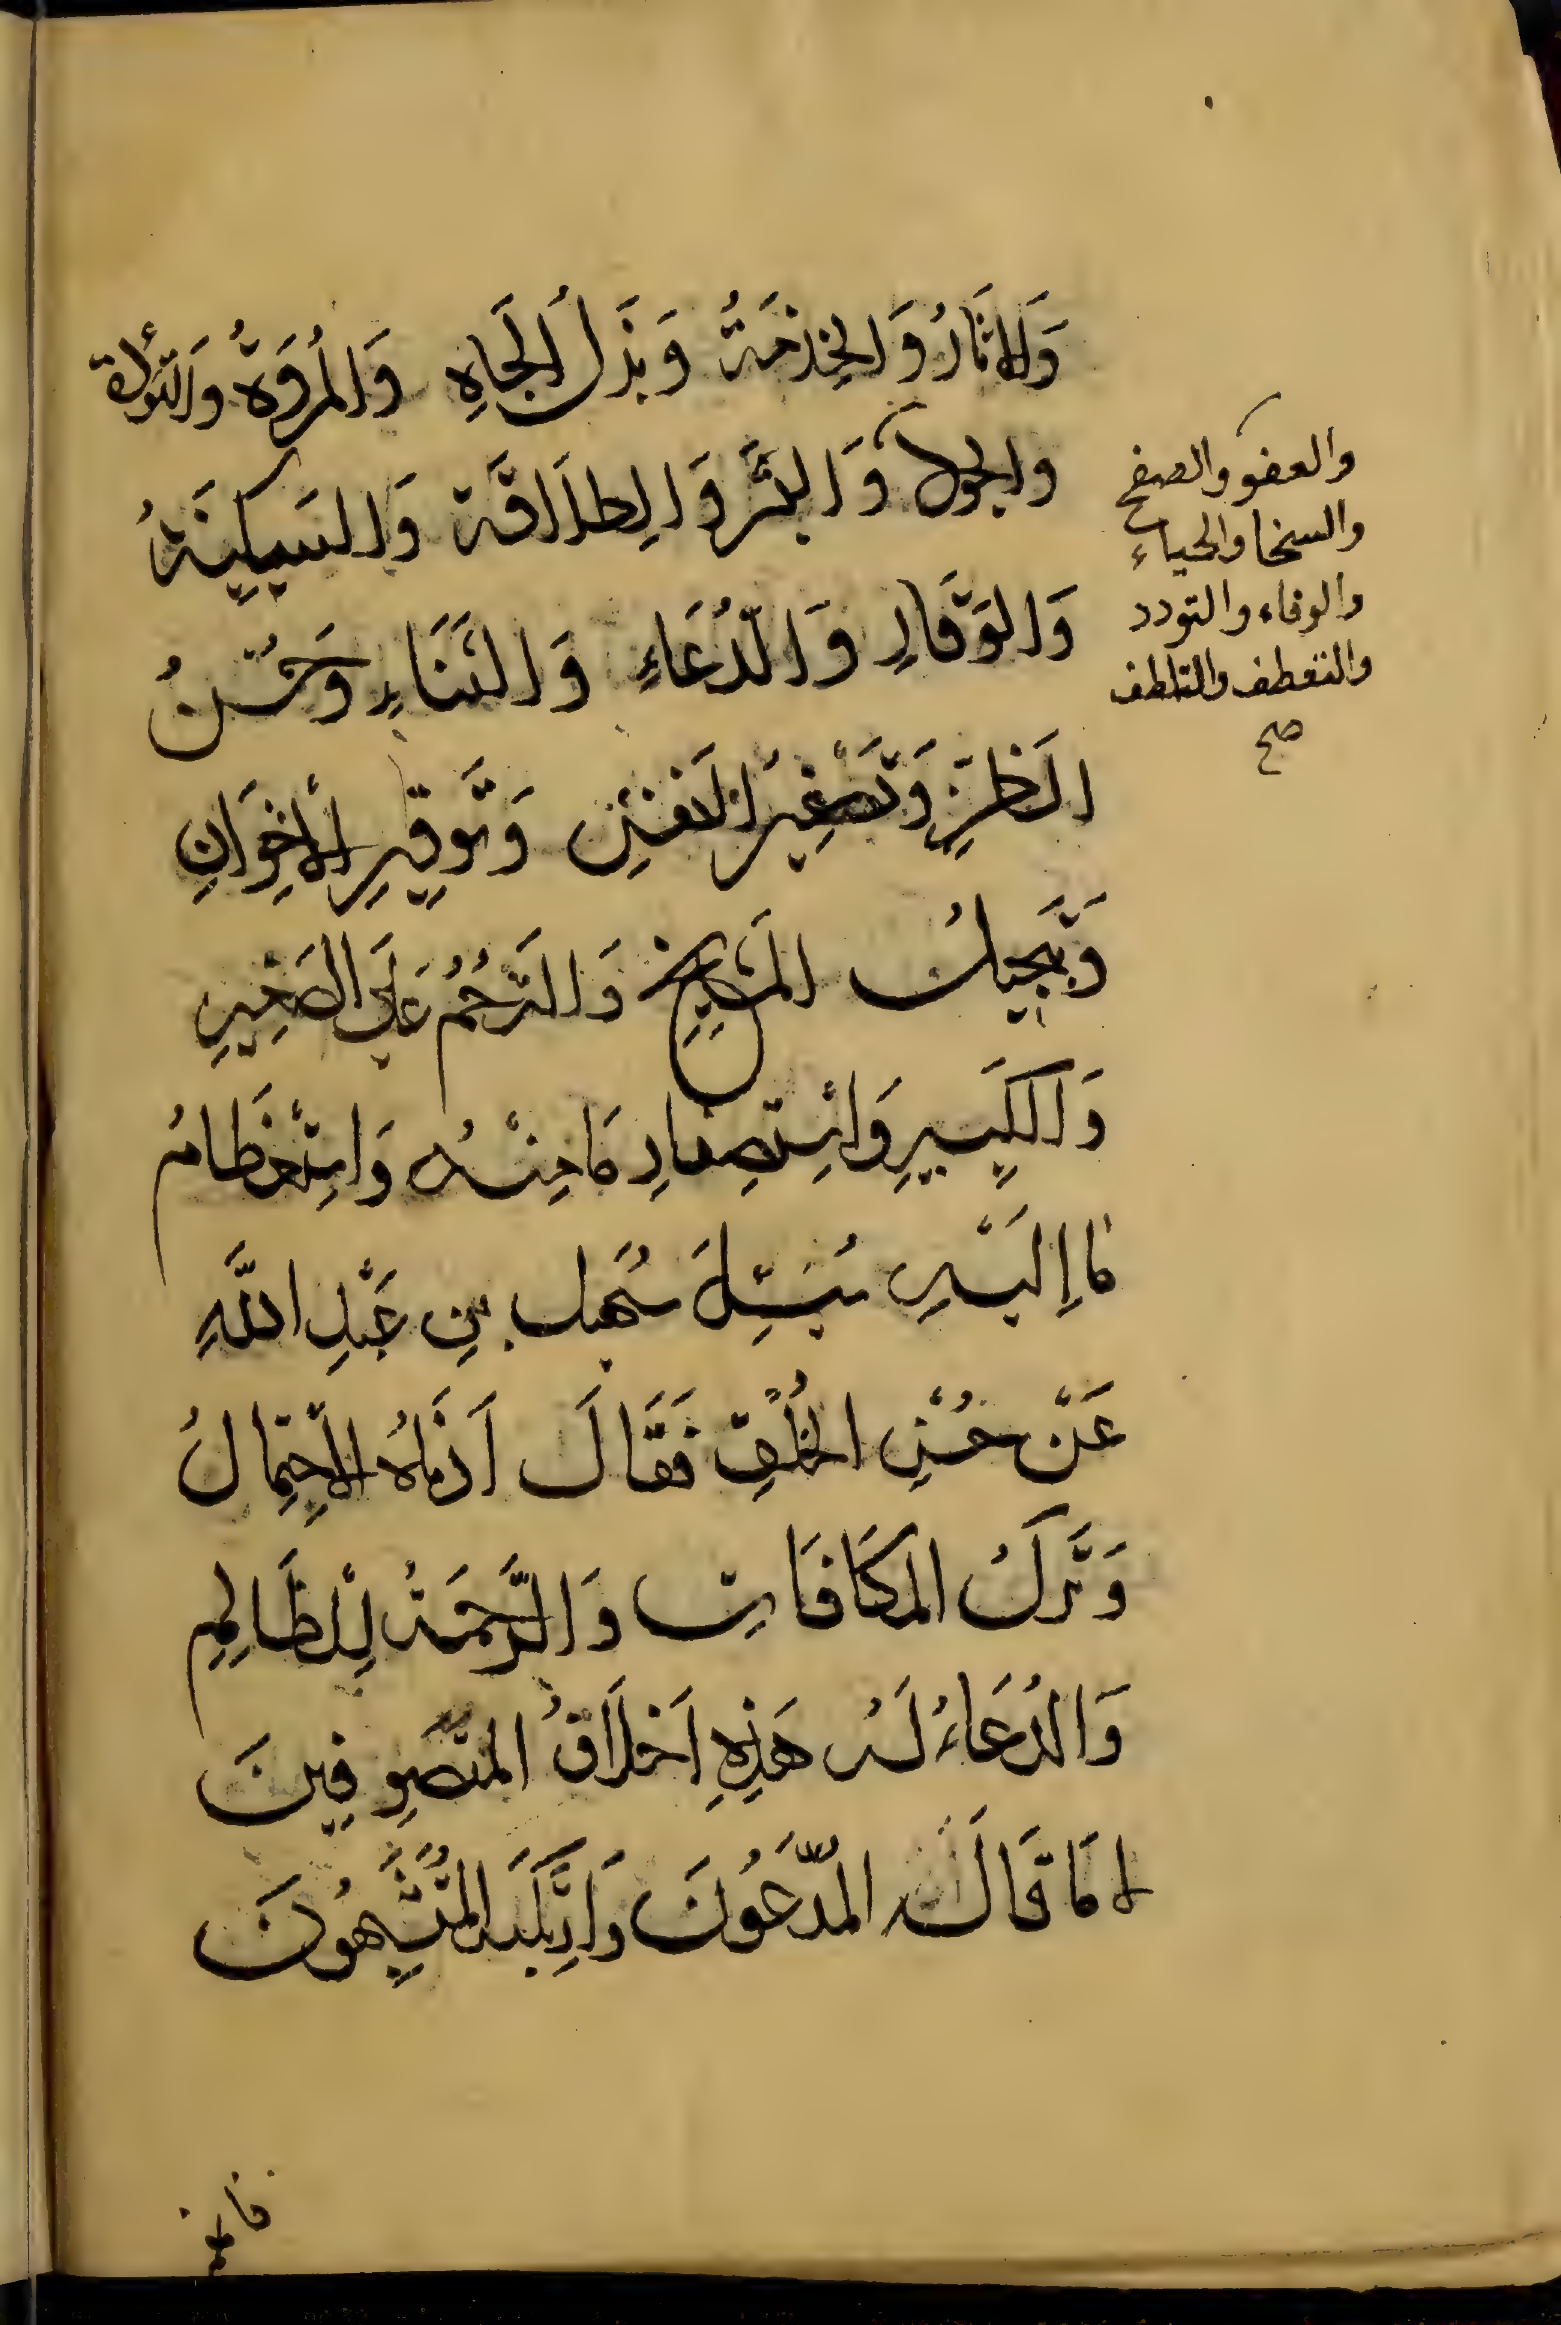 وَالاِيثَارُ وَالخِدْمَةُ وَبَذْلُ الجَاهِ وَالمُرُوَّةُ وَالتودة
والجود وَالبِشْرِ وَالطَلَاقَة وَالسَكِينَةُ
وَالوَقَارِ وَالدُّعَاءِ وَالثَنَاءِ وَحُسْنُ
الظَنِّ وَتَصْغِيرُ النَفْسِ وَتَوْقِيرِ الْاِخْوَانِ
وَتَبْجِيلُ المَشَايِخِ وَالتَرَحُّمُ عَلَى الصَغِيرِ
وَالكَبِيرِ وَاسْتِصْغَارِ مَا مِنْهُ وَاسْتِعْظَامُ
مَا اِلَيْهِ سُئِلَ سَهْل بنِ عَبْدِ اللَّهِ
عَنْ حُسْنِ الخُلُقِ فَقَالَ اَدْنَاهُ الْاِحْتِمَالُ
وَتَرْكُ المكَافَاتِ وَالرَّحْمَةُ لِلظَالِمِ
وَالدُعَاءُ لَهُ هَذِهِ اَخْلَاقُ المتَصَوِفِينَ
لا مَا قَالَهُ المدَّعُونَ وَ المُتَشَبِّهُونَ
والعفو والصفح
والسخا والحياء
والوفاء والتودد
والتعطف والتلطف
صح